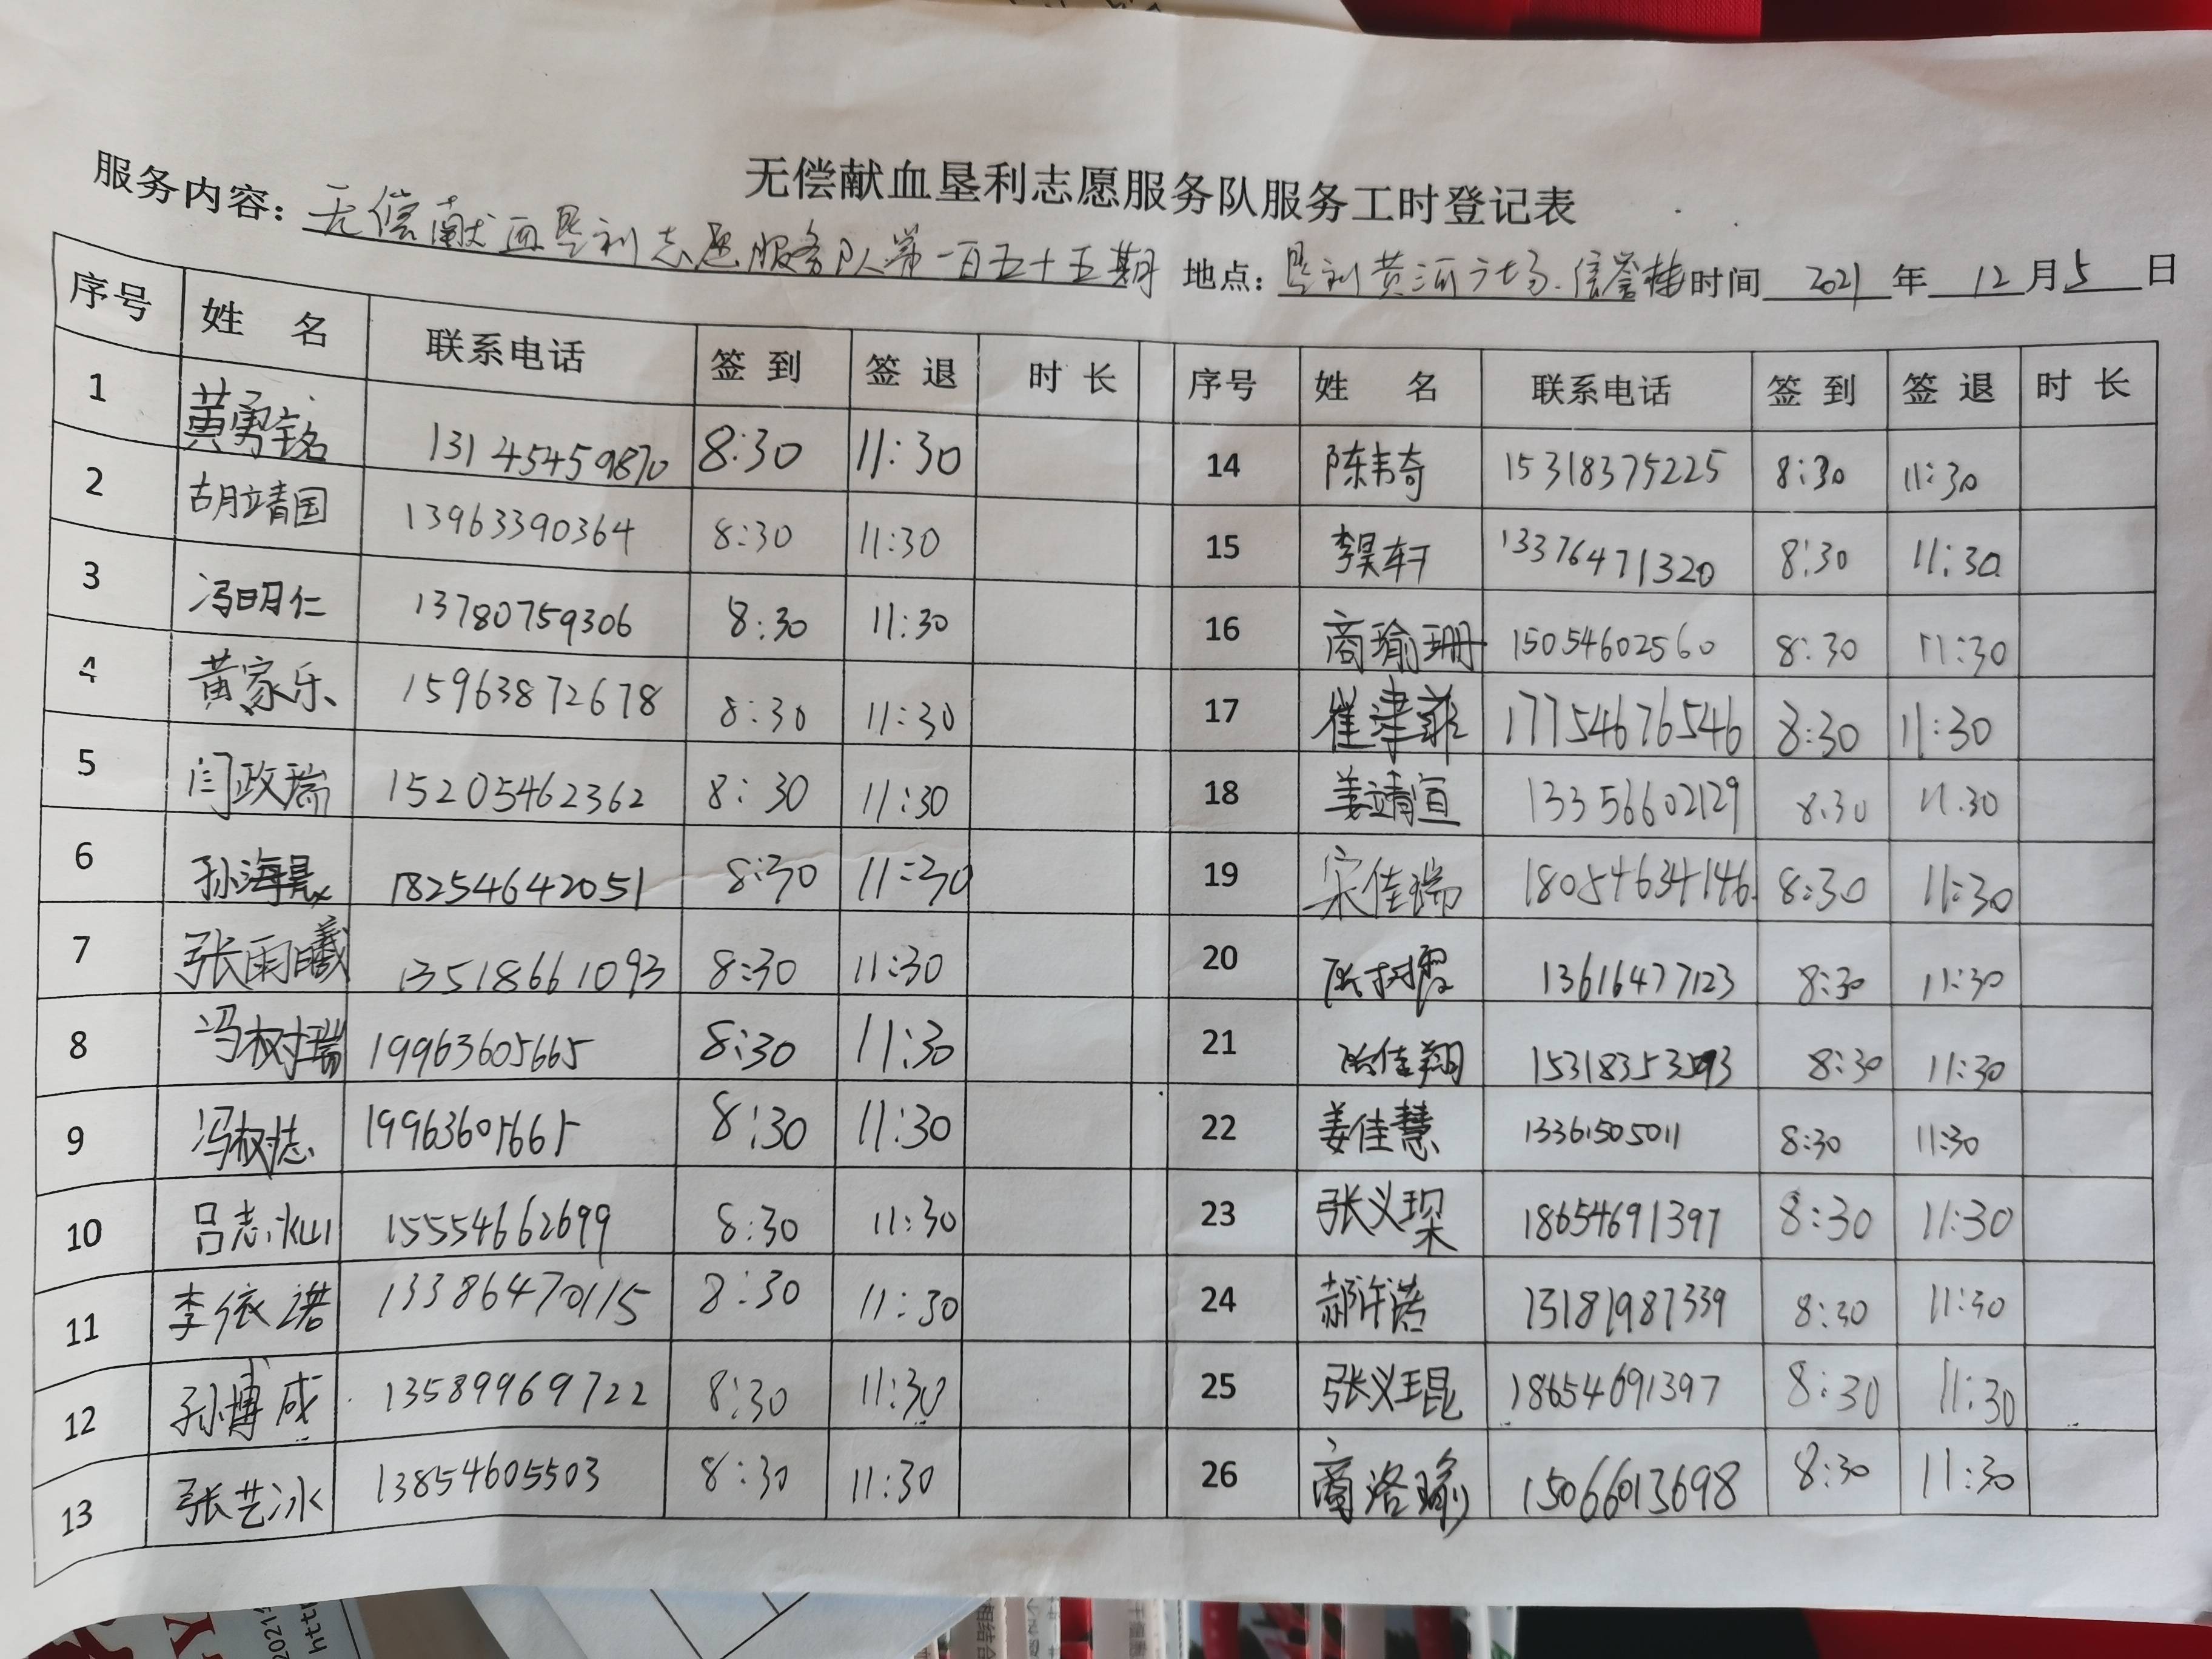 无偿献血垦利志愿服务队服务工时登记表
服务内容：无偿献血垦利志愿服务队第一百五十五期 地点：垦利黄河广场.信誉楼 时间 2021 年 12 月 5 日
序号 姓 名 联系电话 签 到 签 退 时 长 序号 姓 名 联系电话 签 到 签 退 时 长
1 黄勇铭 13145459870 8:30 11:30 14 陈韦奇 15318375225 8:30 11:30
2 胡靖国 13963390364 8:30 11:30 15 李昊轩 13376471320 8:30 11:30
3 冯明仁 13780759306 8:30 11:30 16 商瑜珊 15054602560 8:30 11:30
4 黄家乐 15963872678 8:30 11:30 17 崔津菲 17754676546 8:30 11:30
5 闫政瑞 15205462362 8:30 11:30 18 姜靖宣 13356602129 8:30 11:30
6 孙海晟 18254642051 8:30 11:30 19 宋佳瑞 18054634146 8:30 11:30
7 张雨曦 13518661093 8:30 11:30 20 13616477123 8:30 11:30
8 冯树瑞 19963605665 8:30 11:30 21 8:30 11:30
9 冯树志 19963605665 8:30 11:30 22 姜佳慧 13361505011 8:30 11:30
10 吕志灿 15554662699 8:30 11:30 23 张义琛 18654691397 8:30 11:30
11 李依诺 13386470115 8:30 11:30 24 郝许诺 13181987339 8:30 11:30
12 孙博成 13589969722 8:30 11:30 25 张义琨 18654691397 8:30 11:30
13 张艺冰 13854605503 8:30 11:30 26 商洛瑜 15066013698 8:30 11:30